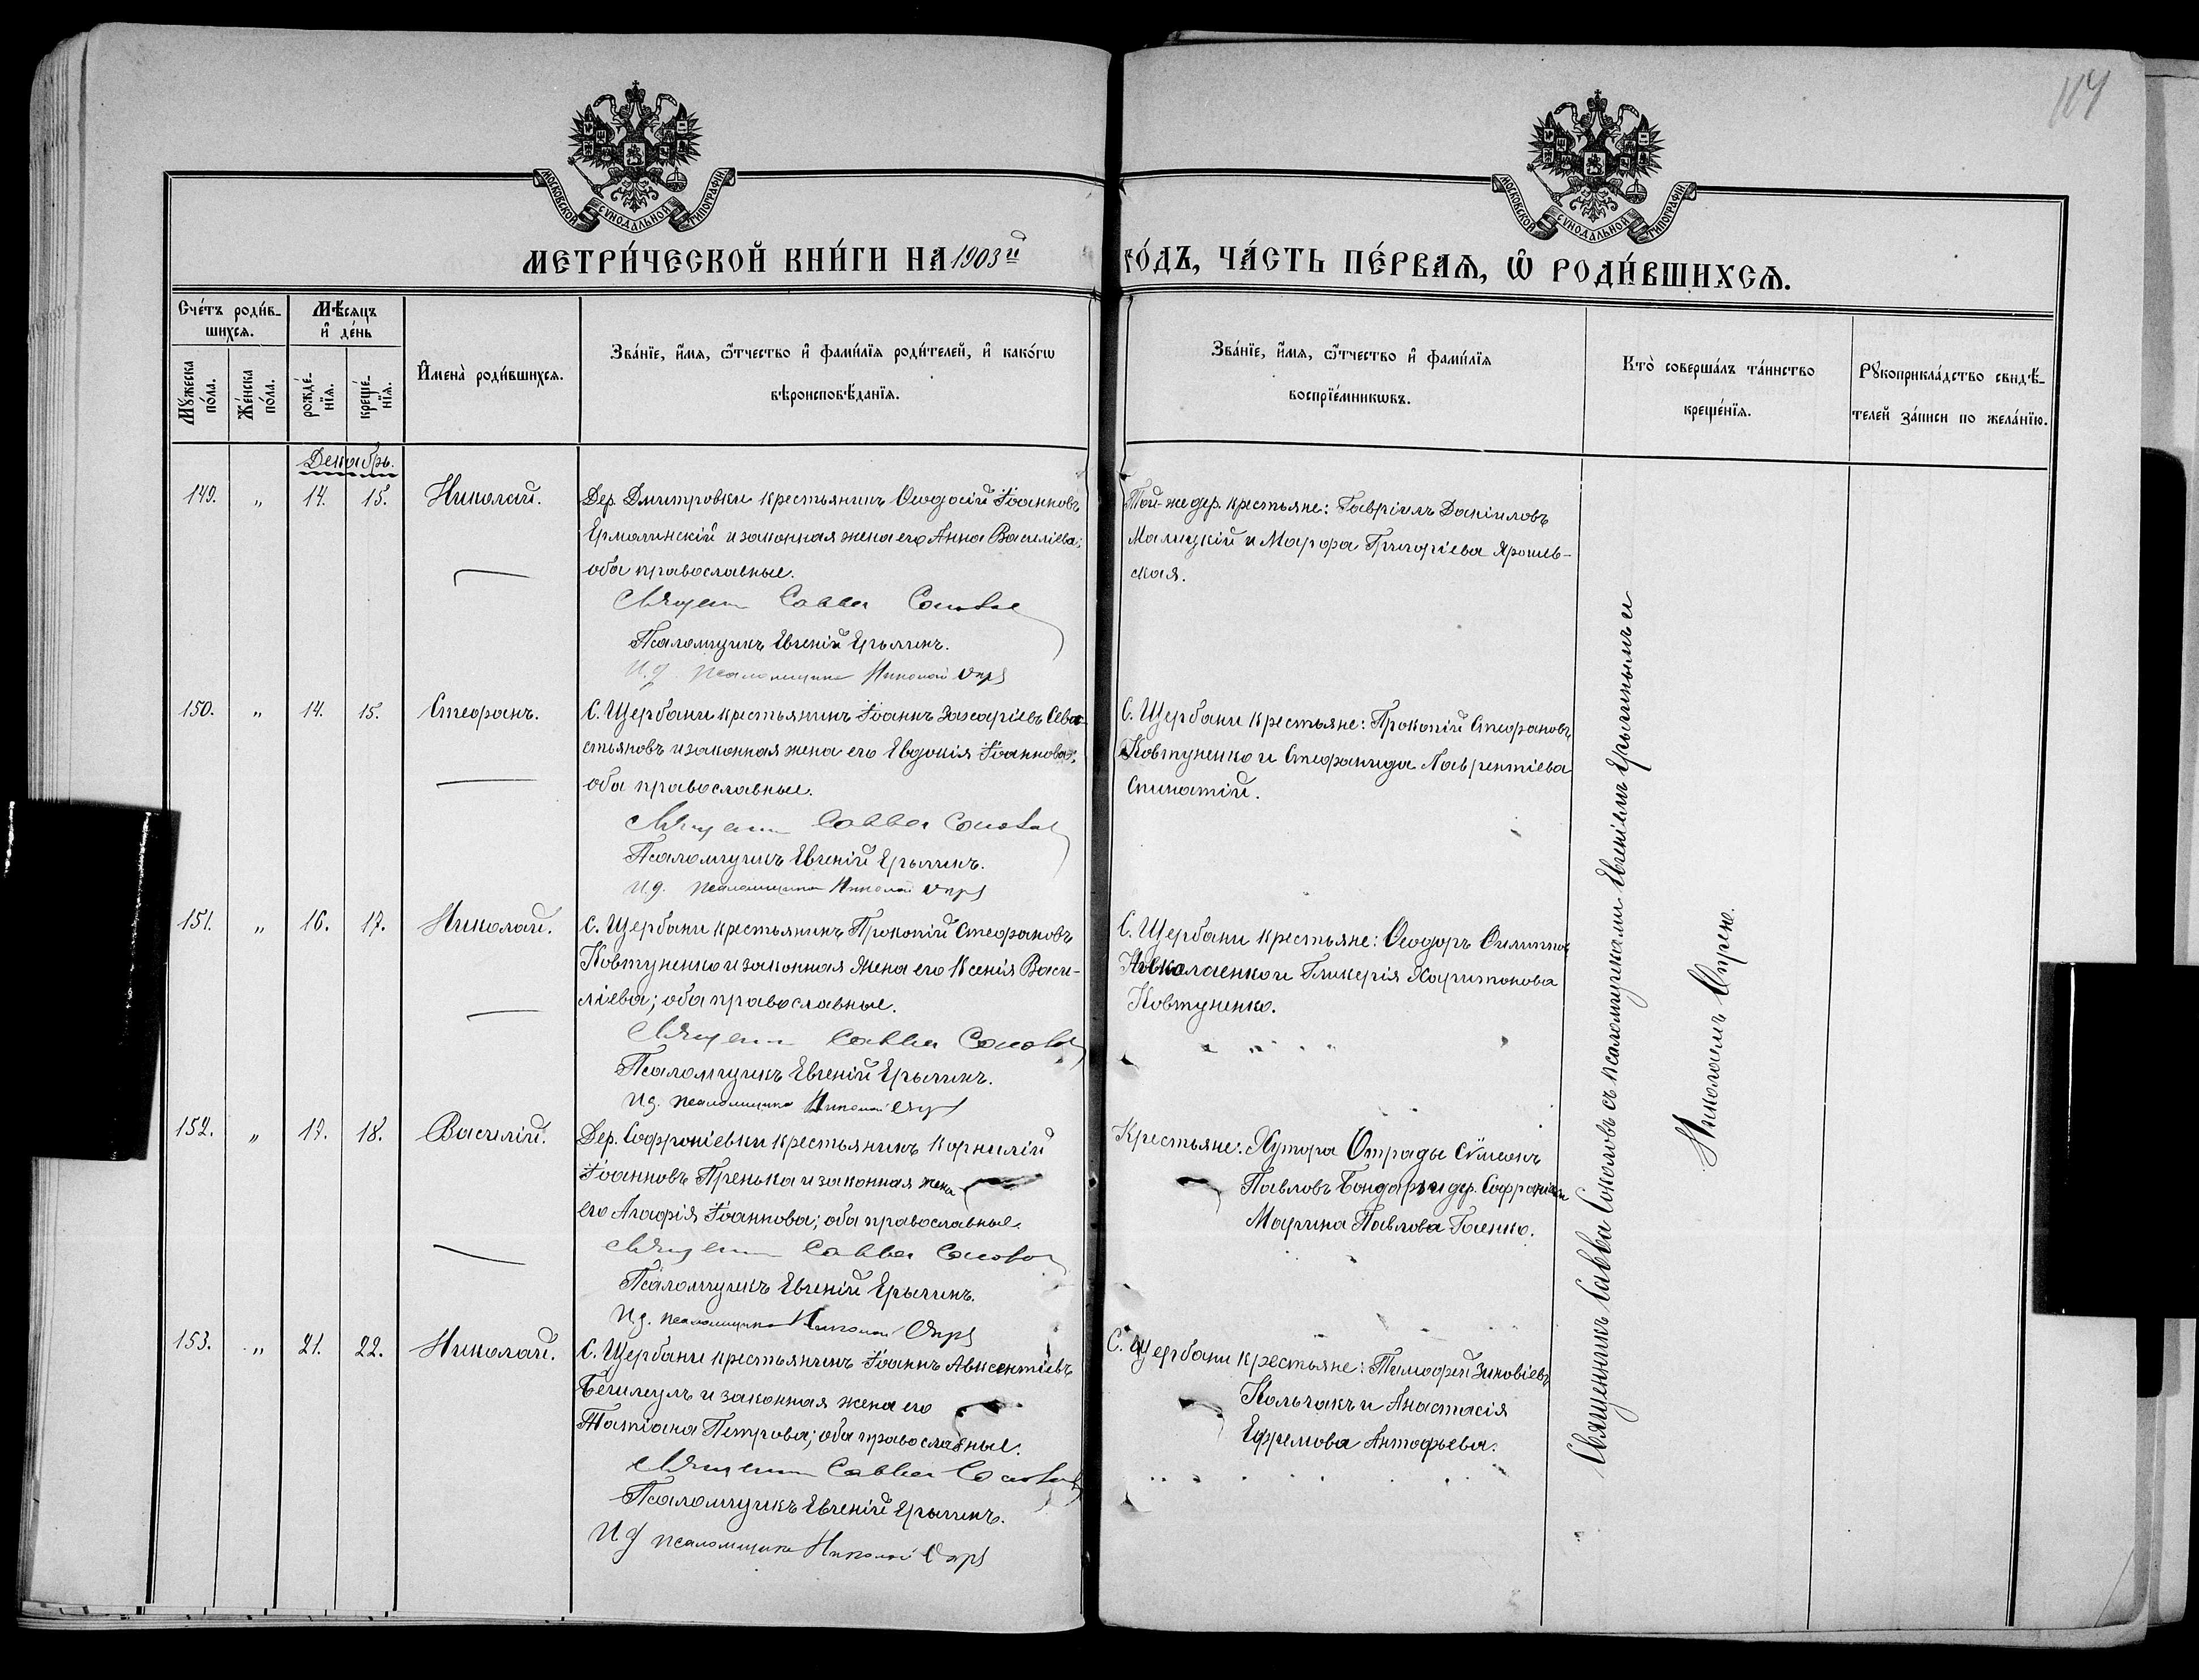 114
МОСКОВСКОЙ СѴНОДАЛЬНОЙ ТИПОГРАФІИ
МОСКОВСКОЙ СѴНОДАЛЬНОЙ ТИПОГРАФІИ
МЕТРИ́ЧЕСКОЙ КНИ́ГИ НА 1903й
ГО́ДЪ, ЧА́СТЬ ПЕ́РВАѦ, Ѽ РОДИ́ВШИХСѦ.
Сче́тъ роди́в-
шихсѧ.
Мꙋжеска по́ла.
Же́нска по́ла.
Мѣ́сѧцъ
и҆ де́нь
рожде́-
нїѧ.
креще́-
нїѧ.
И҆мена̀ роди́вшихсѧ.
Зва́нїе, и҆́мѧ, ѻ҆́тчество и҆ фами́лїѧ роди́телей, и҆ како́гѡ
вѣроисповѣ́данїѧ.
Зва́нїе, и҆́мѧ, ѻ҆́тчество и҆ фами́лїѧ
воспрїе́мникѡвъ.
Кто̀ соверша́лъ та́инство
креще́нїѧ.
Рꙋкоприкла́дство свидѣ́-
телей за́писи по жела́нїю.
Декабрь.
149. „ 14. 15. Николай.
Дер. Дмитровки крестьянинъ Ѳеодосій Іоанновъ
Ермалинскій и законная жена его Анна Василіева;
оба православные.
Священн Савва Соколов
Псаломщикъ Евгеній Ерыгинъ.
И.д. псаломщика Николай Опря
Той-же дер. крестьяне: Гавріилъ Даніиловъ
Малицкій и Марѳа Григоріева Ярошев-
ская.
150. „ 14. 15. Стефанъ.
С. Щербани крестьянинъ Іоаннъ Захаріевъ Сева-
стьяновъ и законная жена его Евдокія Іоаннова;
оба православные.
Священн Савва Соколов
Псаломщикъ Евгеній Ерыгинъ.
И.д. псаломщика Николай Опря
С. Щербани крестьяне: Прокопій Стефановъ
Ковтуненко и Стефанида Лаврентіева
151. „ 16. 17. Николай.
С. Щербани крестьянинъ Прокопій Стефановъ
Ковтуненко и законная жена его Ксенія Васи-
ліева; оба православные.
Священн Савва Соколов
Псаломщикъ Евгеній Ерыгинъ.
И.д. псаломщика Николай Опря
С. Щербани крестьяне: Ѳеодоръ
и Гликерія Харитонова
Ковтуненко.
152. „ 17. 18. Василій.
Дер. Софроніевки крестьянинъ Корнилій
Іоанновъ Пренька и законная жена
его Агафія Іоаннова; оба православные.
Священн Савва Соколов
Псаломщикъ Евгеній Ерыгинъ.
И.д. псаломщика Николай Опря
Крестьяне: Хутора Отрады Сѵмеонъ
Павловъ Бондарь и дер. Софроніевки
Марина Павлова Гаенко.
153. „ 21. 22. Николай.
С. Щербани крестьянинъ Іоаннъ Авксентіевъ
и законная жена его
Татіана Петрова; оба православные.
Священн Савва Соколов
Псаломщикъ Евгеній Ерыгинъ.
И.д. псаломщика Николай Опря
С. Щербани крестьяне: Тимофей Зиновіевъ
Кольчакъ и Анастасія
Ефремова Антофьева.
Священникъ Савва Соколовъ съ псаломщиками Евгеніемъ Ерыгинымъ и
Николаемъ Опрею.